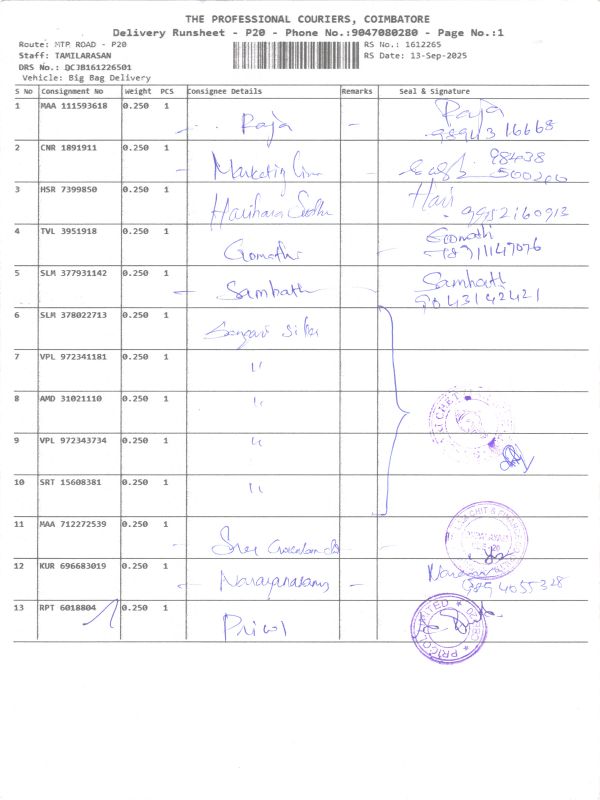 THE PROFESSIONAL COURIERS, COIMBATORE
Delivery Runsheet - P20 - Phone No.:9047080280 - Page No.:1
Route: MTP ROAD - P20
RS No.: 1612265
Staff: TAMILARASAN
RS Date: 13-Sep-2025
DRS No.: DCJB161226501
Vehicle: Big Bag Delivery
S No Consignment No Weight PCS Consignee Details Remarks Seal & Signature
1 MAA 111593618 0.250 1 Raja - Raja
9894316668
2 CNR 1891911 0.250 1 Marketing 984038
500200
3 HSR 7399850 0.250 1 Harihara Sudhu Hari
9952160913
4 TVL 3951918 0.250 1 Gomathi Gomathi
5 SLM 377931142 0.250 1 Sambath Sambath
9043142421
6 SLM 378022713 0.250 1
7 VPL 972341181 0.250 1 "
8 AMD 31021110 0.250 1 "
9 VPL 972343734 0.250 1 "
10 SRT 15608381 0.250 1 "
11 MAA 712272539 0.250 1 Sree CHIT & FINANCE
12 KUR 696683019 0.250 1 Narayanasamy
9894055328
13 RPT 6018804 0.250 1 Pricol PRICOL LIMITED